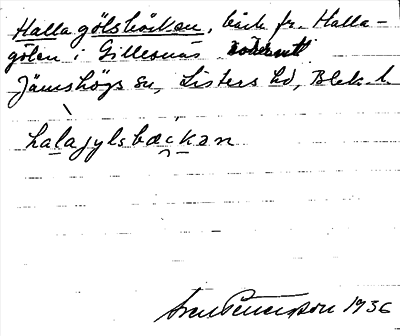 Hallagölsbäcken, bäck fr. Halla-
gölen i Gillesnäs
Jämshögs sn, Listers hd, Blek. l.
halagylsbæckan
Sven Petersson 1936